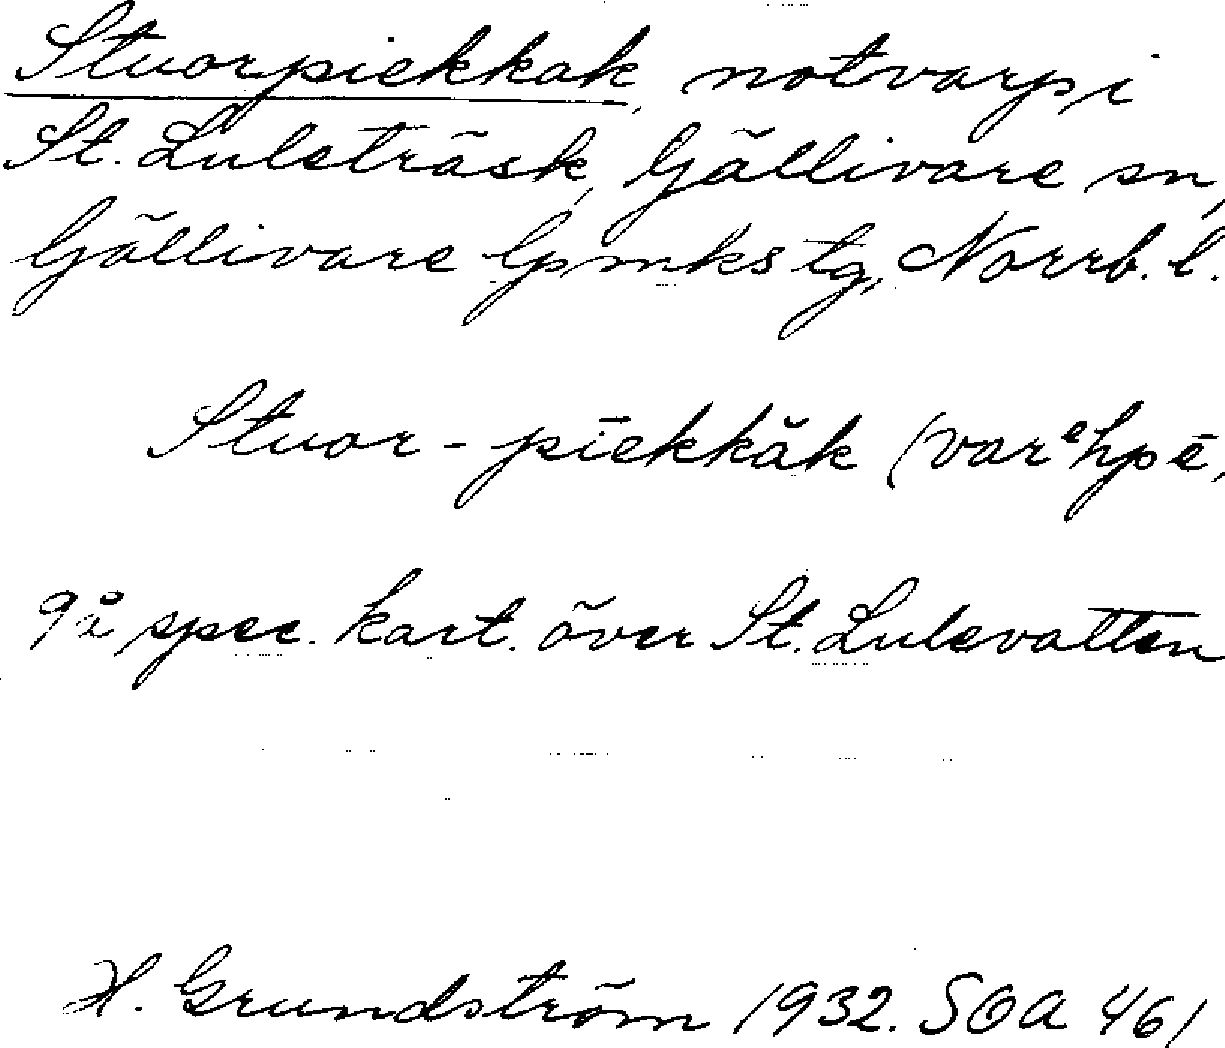 Stuorpiekkak, notvarp i
St. Luleträsk, Gällivare sn,
Gällivare lpmks tg, Norrb. l.
Stuor - pīekkăk (varᵉhpē,
9å spec. kart. över St. Lulevatten
H. Grundström 1932. SOA 461